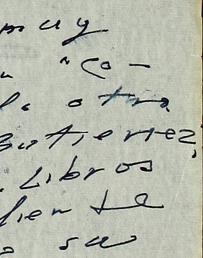 muy
"co-
la otra
Gutierrez,
Libros
su